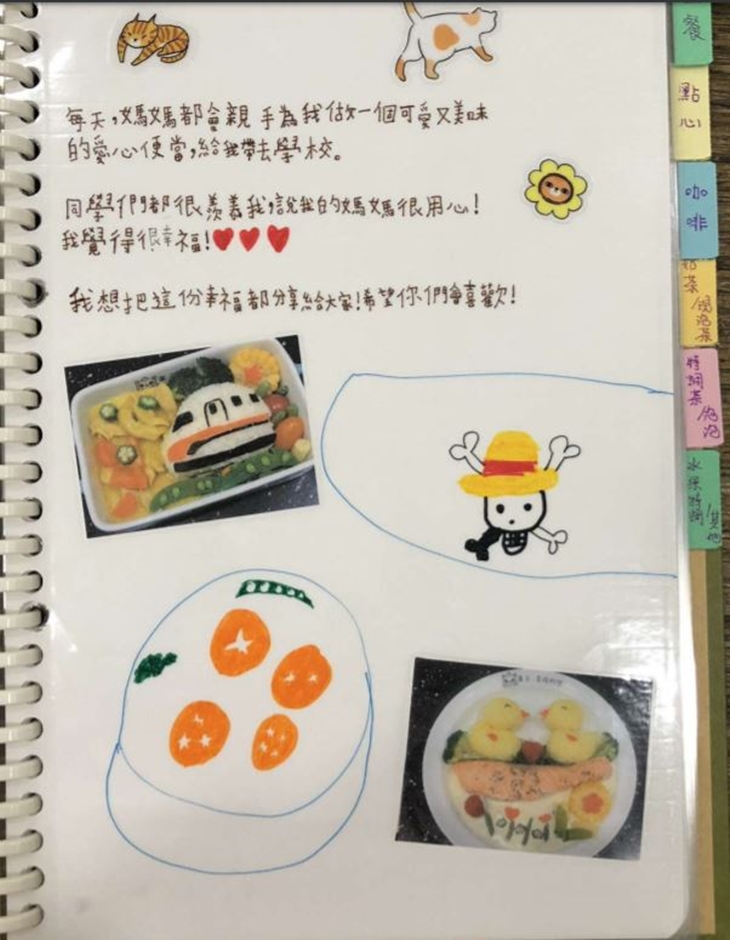 每天,媽媽都會親手為我做一個可愛又美味
的愛心便當,給我帶去學校。
同學們都很羨慕我,說我的媽媽很用心!
我覺得很幸福!
我想把這份幸福都分享給大家!希望你們會喜歡!
餐
點心
咖啡
奶茶/鍋泡茶
特調茶/鍋泡
水果特調/其他